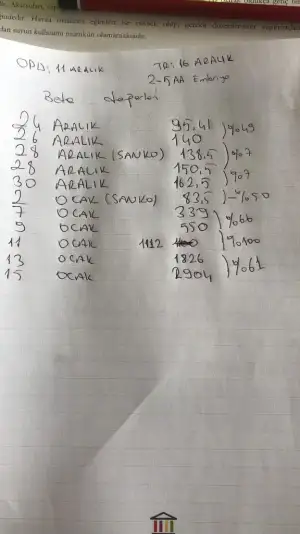 OPU: 11 ARALIK
TR: 16 ARALIK
2-5AA Embriyo
Beta değerleri
24 ARALIK 95.41
26 ARALIK 140 ) %49
28 ARALIK (SANKO) 138,5
28 ARALIK 150,5 ) %7
30 ARALIK 162,5 ) %7
2 OCAK (SANKO) 83,5 ) -%50
7 OCAK 339
9 OCAK 550 ) %66
11 OCAK 1112 ) %100
13 OCAK 1826
15 OCAK 2904 ) %61